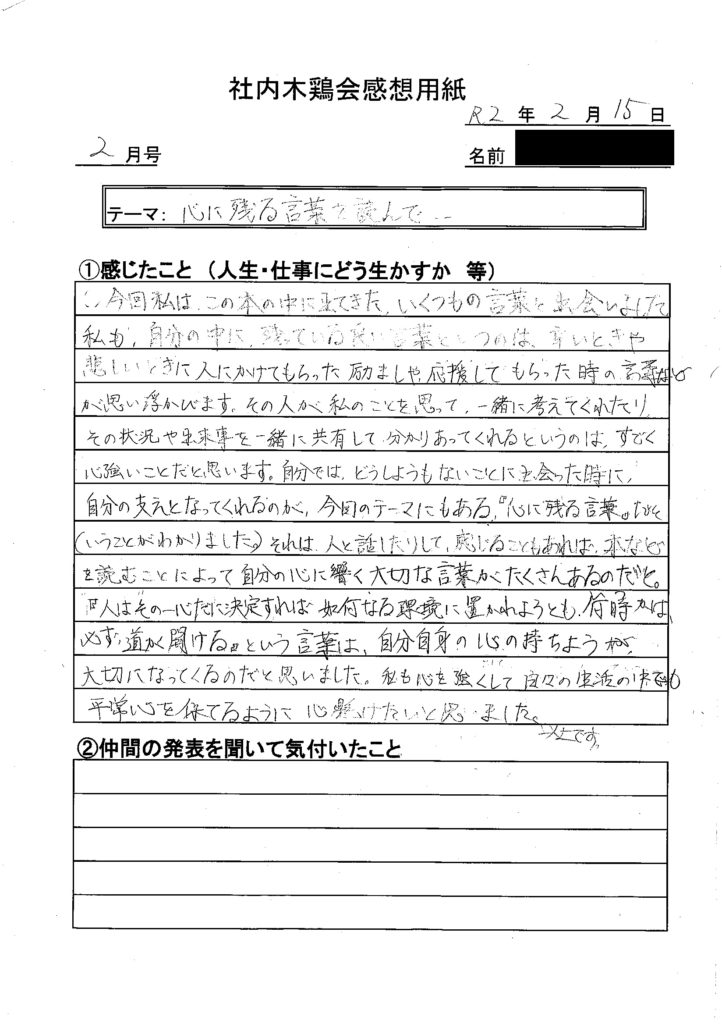 社内木鶏会感想用紙
R2 年 2 月 15 日
2 月号
名前
テーマ: 心に残る言葉を読んで…
①感じたこと (人生・仕事にどう生かすか 等)
今回私は、この本の中に出てきた、いくつもの言葉と出会いました
私も、自分の中に、残っている良い言葉というのは、辛いときや
悲しいときに人にかけてもらった励ましや応援してもらった時の言葉など
が思い浮かびます。その人が私のことを思って、一緒に考えてくれたり
その状況や出来事を一緒に共有して分かりあってくれるというのは、すごく
心強いことだと思います。自分では、どうしようもないことに出会った時に、
自分の支えとなってくれるのが、今回のテーマにもある、『心に残る言葉』だと
いうことがわかりました。それは、人と話したりして、感じることもあれば、本など
を読むことによって自分の心に響く大切な言葉がたくさんあるのだと。
『人はその一心だに決定すれば 如何なる環境に置かれようとも、何時かは、
必ず道が開ける。』という言葉は、自分自身の心の持ちようが、
大切になってくるのだと思いました。私も心を強くして日々の生活の中でも
平常心を保てるように心懸けたいと思いました。
以上です。
②仲間の発表を聞いて気付いたこと